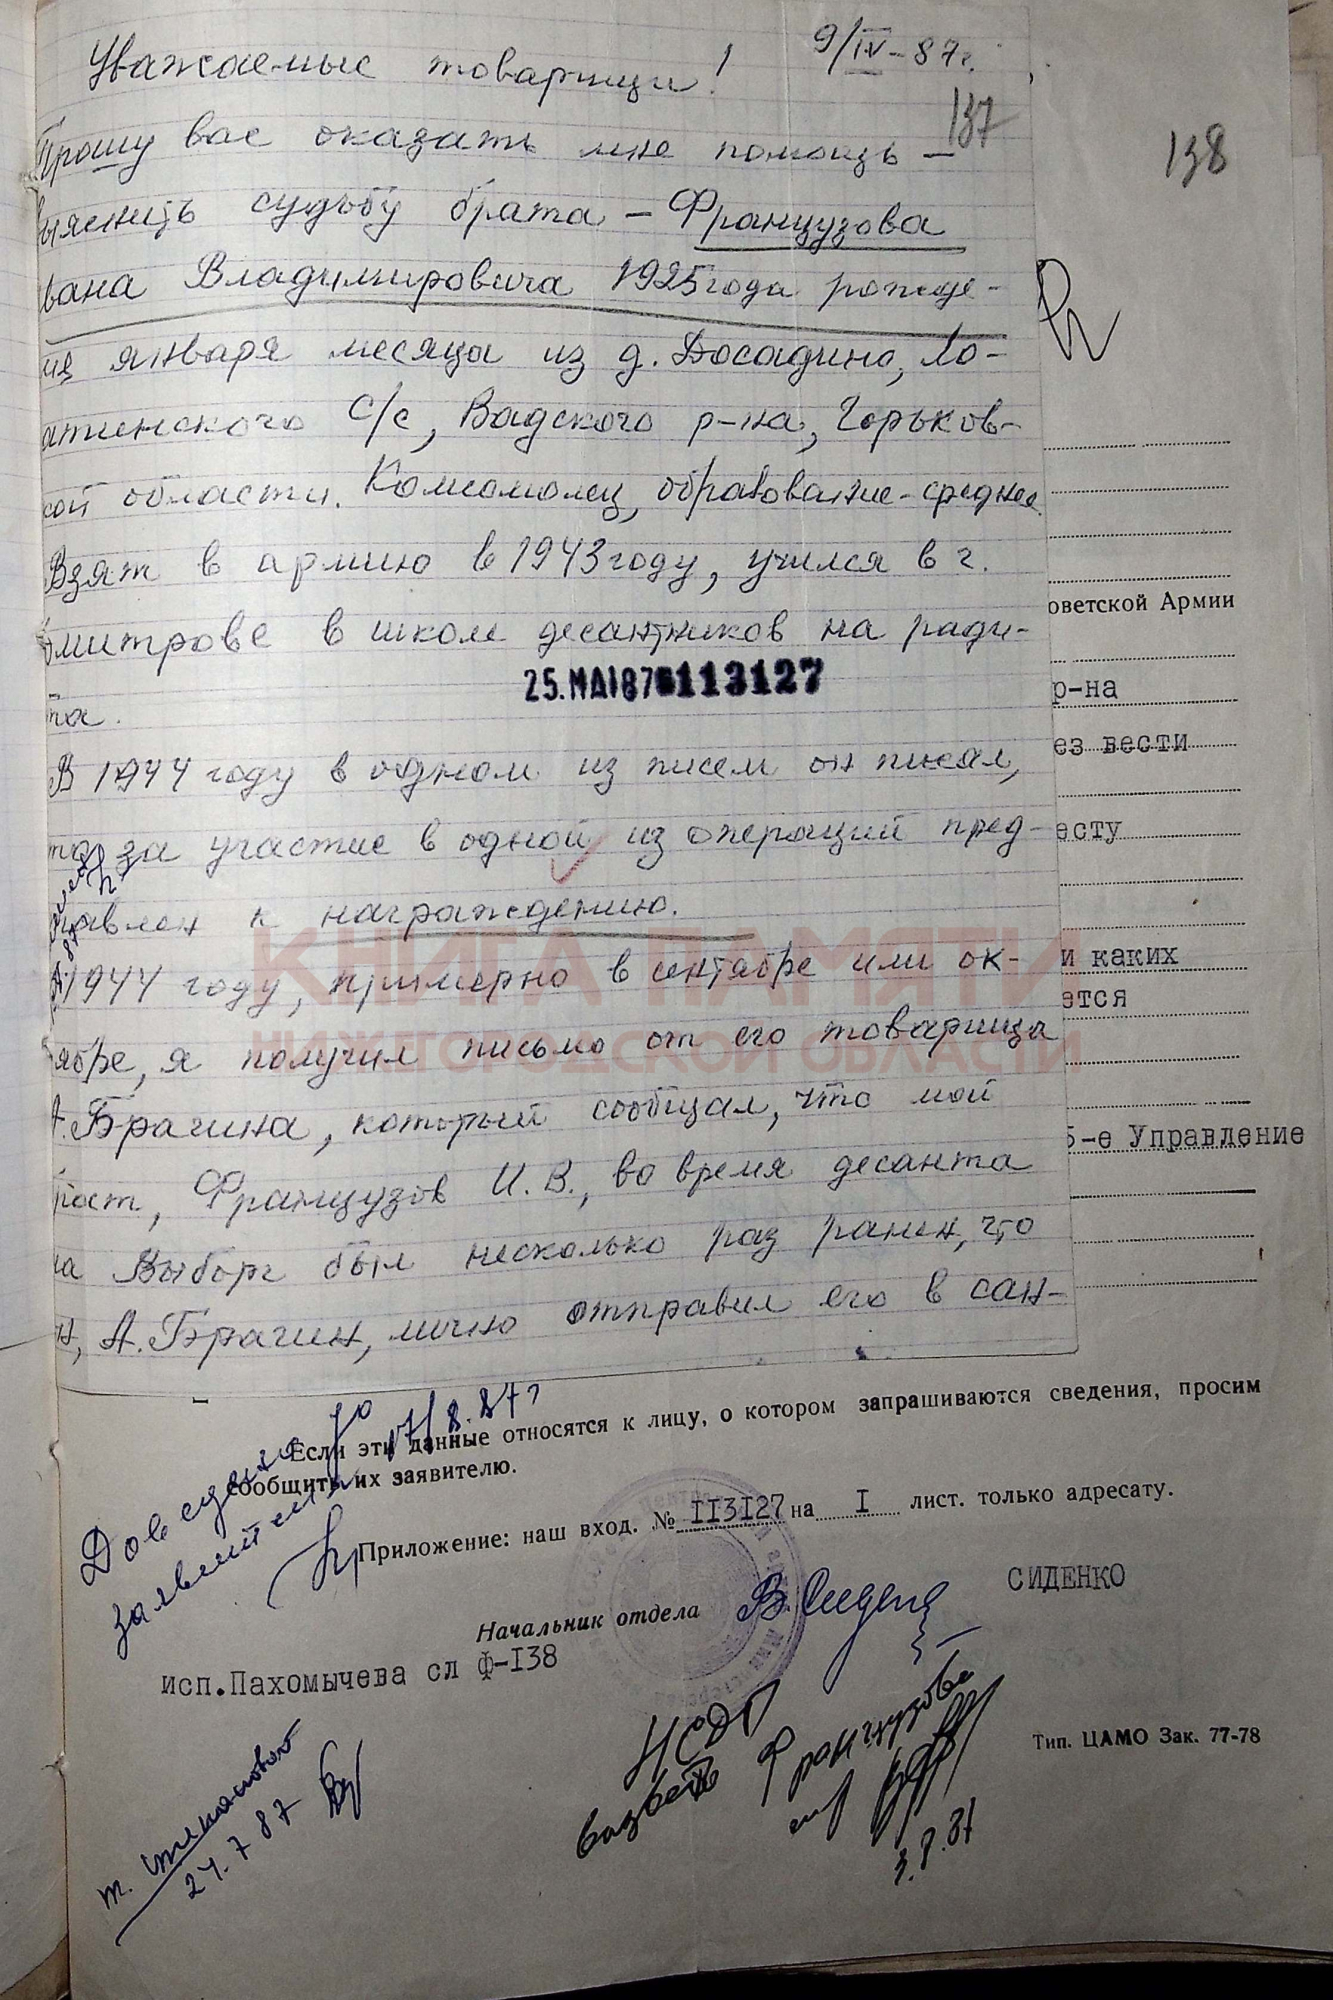 9/IV-87г.
Уважаемые товарищи!
137
138
Прошу вас оказать мне помощь –
выяснить судьбу брата – Французова
вана Владимировича 1925 года рожде-
ия января месяца из д. Досадино, Ло-
атинского с/с, Вадского р-на, Горьков-
кой области. Комсомолец, образование-среднее.
Взят в армию в 1943 году, учился в г.
митрове в школе десантников на ради-
та.
25.МАЙ87 113127
В 1944 году в одном из писем он писал,
то за участие в одной из операций пред-
авлен к награждению.
1944 году, примерно в сентябре или ок-
ябре, я получил письмо от его товарища
А. Брагина, который сообщал, что мой
рат, Французов И.В., во время десанта
на Выборг был несколько раз ранен, что
н, А. Брагин, лично отправил его в сан-
оветской Армии
р-на
ез вести
есту
и каких
ется
5-е Управление
КНИГА ПАМЯТИ
НИЖЕГОРОДСКОЙ ОБЛАСТИ
Если эти данные относятся к лицу, о котором запрашиваются сведения, просим
сообщить их заявителю.
17/8.87г
заявителю
Приложение: наш вход. № II3I27 на I лист. только адресату.
Начальник отдела В. Сиденко СИДЕНКО
исп.Пахомычева сл Ф-I38
Тип. ЦАМО Зак. 77-78
т. Степановой
24.7.87
Французова
3.8.87